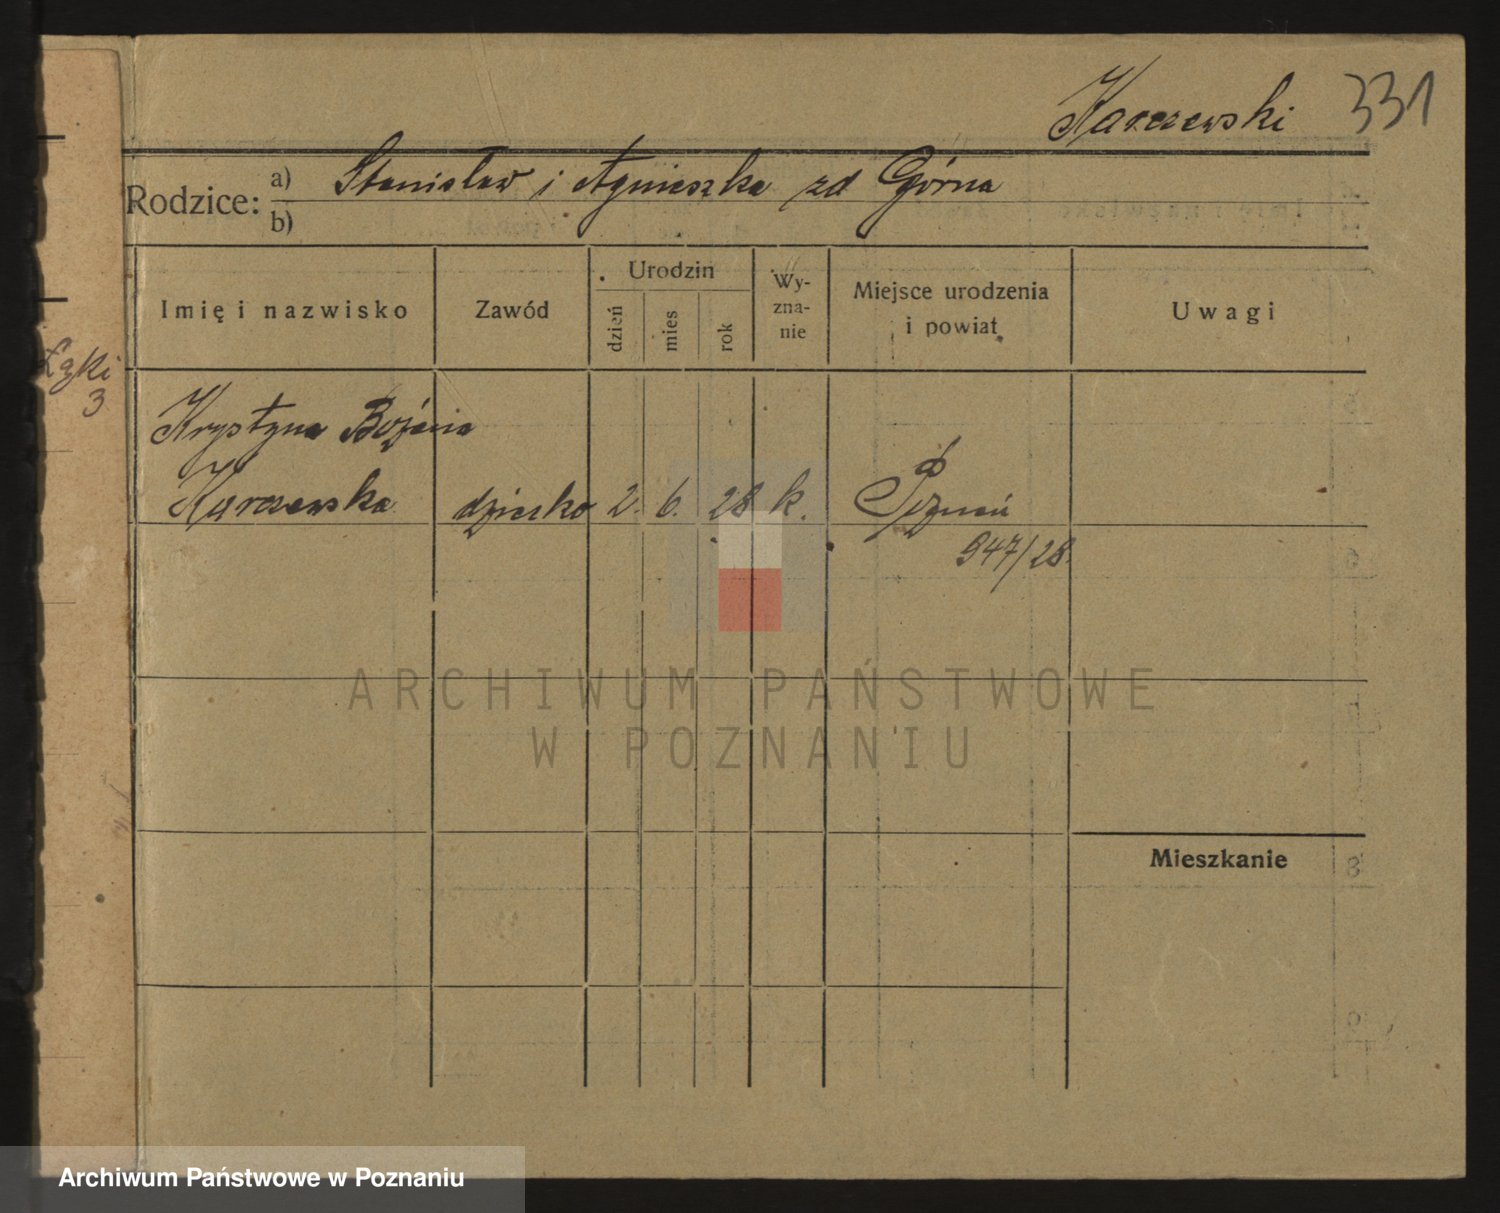 Karczewski 331
Rodzice: a) Stanisław i Agnieszka zd Górna
b)
Imię i nazwisko Zawód Urodzin dzień mies rok Wy-zna-nie Miejsce urodzenia i powiat Uwagi
Łąki
3
Krystyna Bożena
Karczewska dziecko 2. 6. 28 k. Poznań
947/28.
ARCHIWUM PAŃSTWOWE
W POZNANIU
Mieszkanie
Archiwum Państwowe w Poznaniu